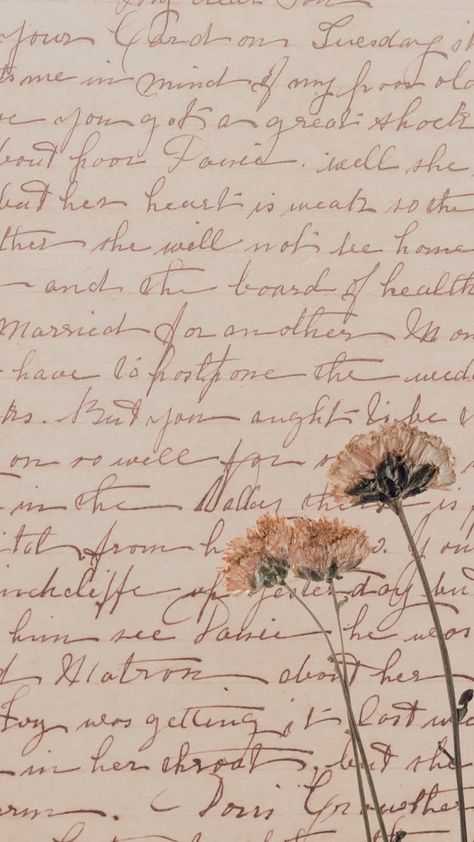 My dear Son
your Card on Tuesday
me in mind of my poor old
you got a great shock
about poor Fanie. well she
but her heart is weak so the
she will not be home
and the board of health
married for another Mon
have to postpone the wedd
But you aught to be
on so well for
in the Valley there is
from h
yesterday but
him see Fanie he was
Matron about her
was getting it last w
in her throat, but she
Grandmother